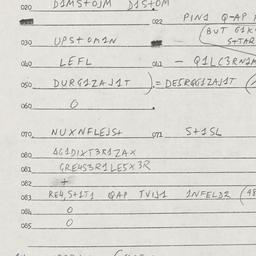 020 D1MS+OJM D1S+OM
022 PIN1 Q-AP
(BUT G1K
030 UPS+OM1N S+TAR
040 LEFL 041 - Q1LC3RN1M
050 DURG1ZAJ1T ) = DESRGG1ZAJ1T (
060 O
070 NUXNFLEJS+ 071 S+1SL
080 4G1DIXT3R1ZAX
081 GRE4S3R1LE5X3R
082 +
083 RE4,S+1T1 QAP TVIJ1 1NFELD2 (98
084 O
085 O